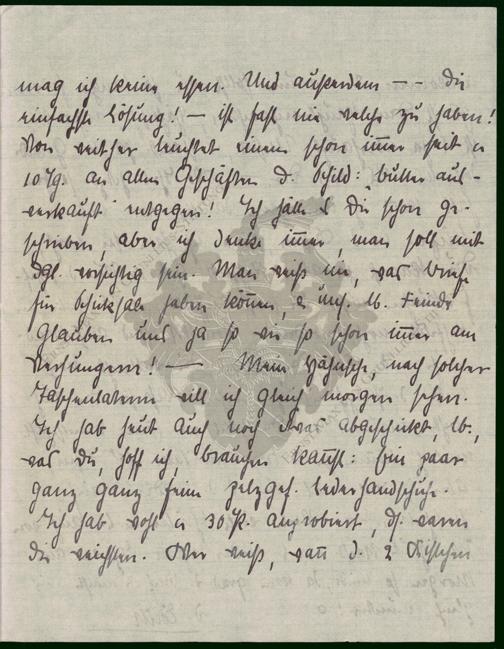 mag ich keine essen. Und außerdem -- die
einfachste Lösung! – ist fast nie welche zu haben!
Von weither leuchtet einem schon immer seit c
10 Tg. an allen Geschäften d. Schild: "Butter aus-
verkauft" entgegen! Ich hätte es Dir schon ge-
schrieben, aber ich denke immer, man soll mit
dgl. vorsichtig sein. Man weiß nie, was Briefe
für Schicksale haben können, & uns. lb. Feinde
glauben uns ja so wie so schon immer am
Verhungern! — Mein, nach solcher
Taschenlaterne will ich gleich morgen sehen.
Ich hab heut auch noch etwas abgeschickt, lb.,
was Du, hoff ich, brauchen kannst: Ein paar
ganz ganz feine pelzgef. Lederhandschuhe.
Ich hab wohl c 30 P. anprobiert, ds. waren
die weichsten. Wer weiß, wann d. 2 Kistchen